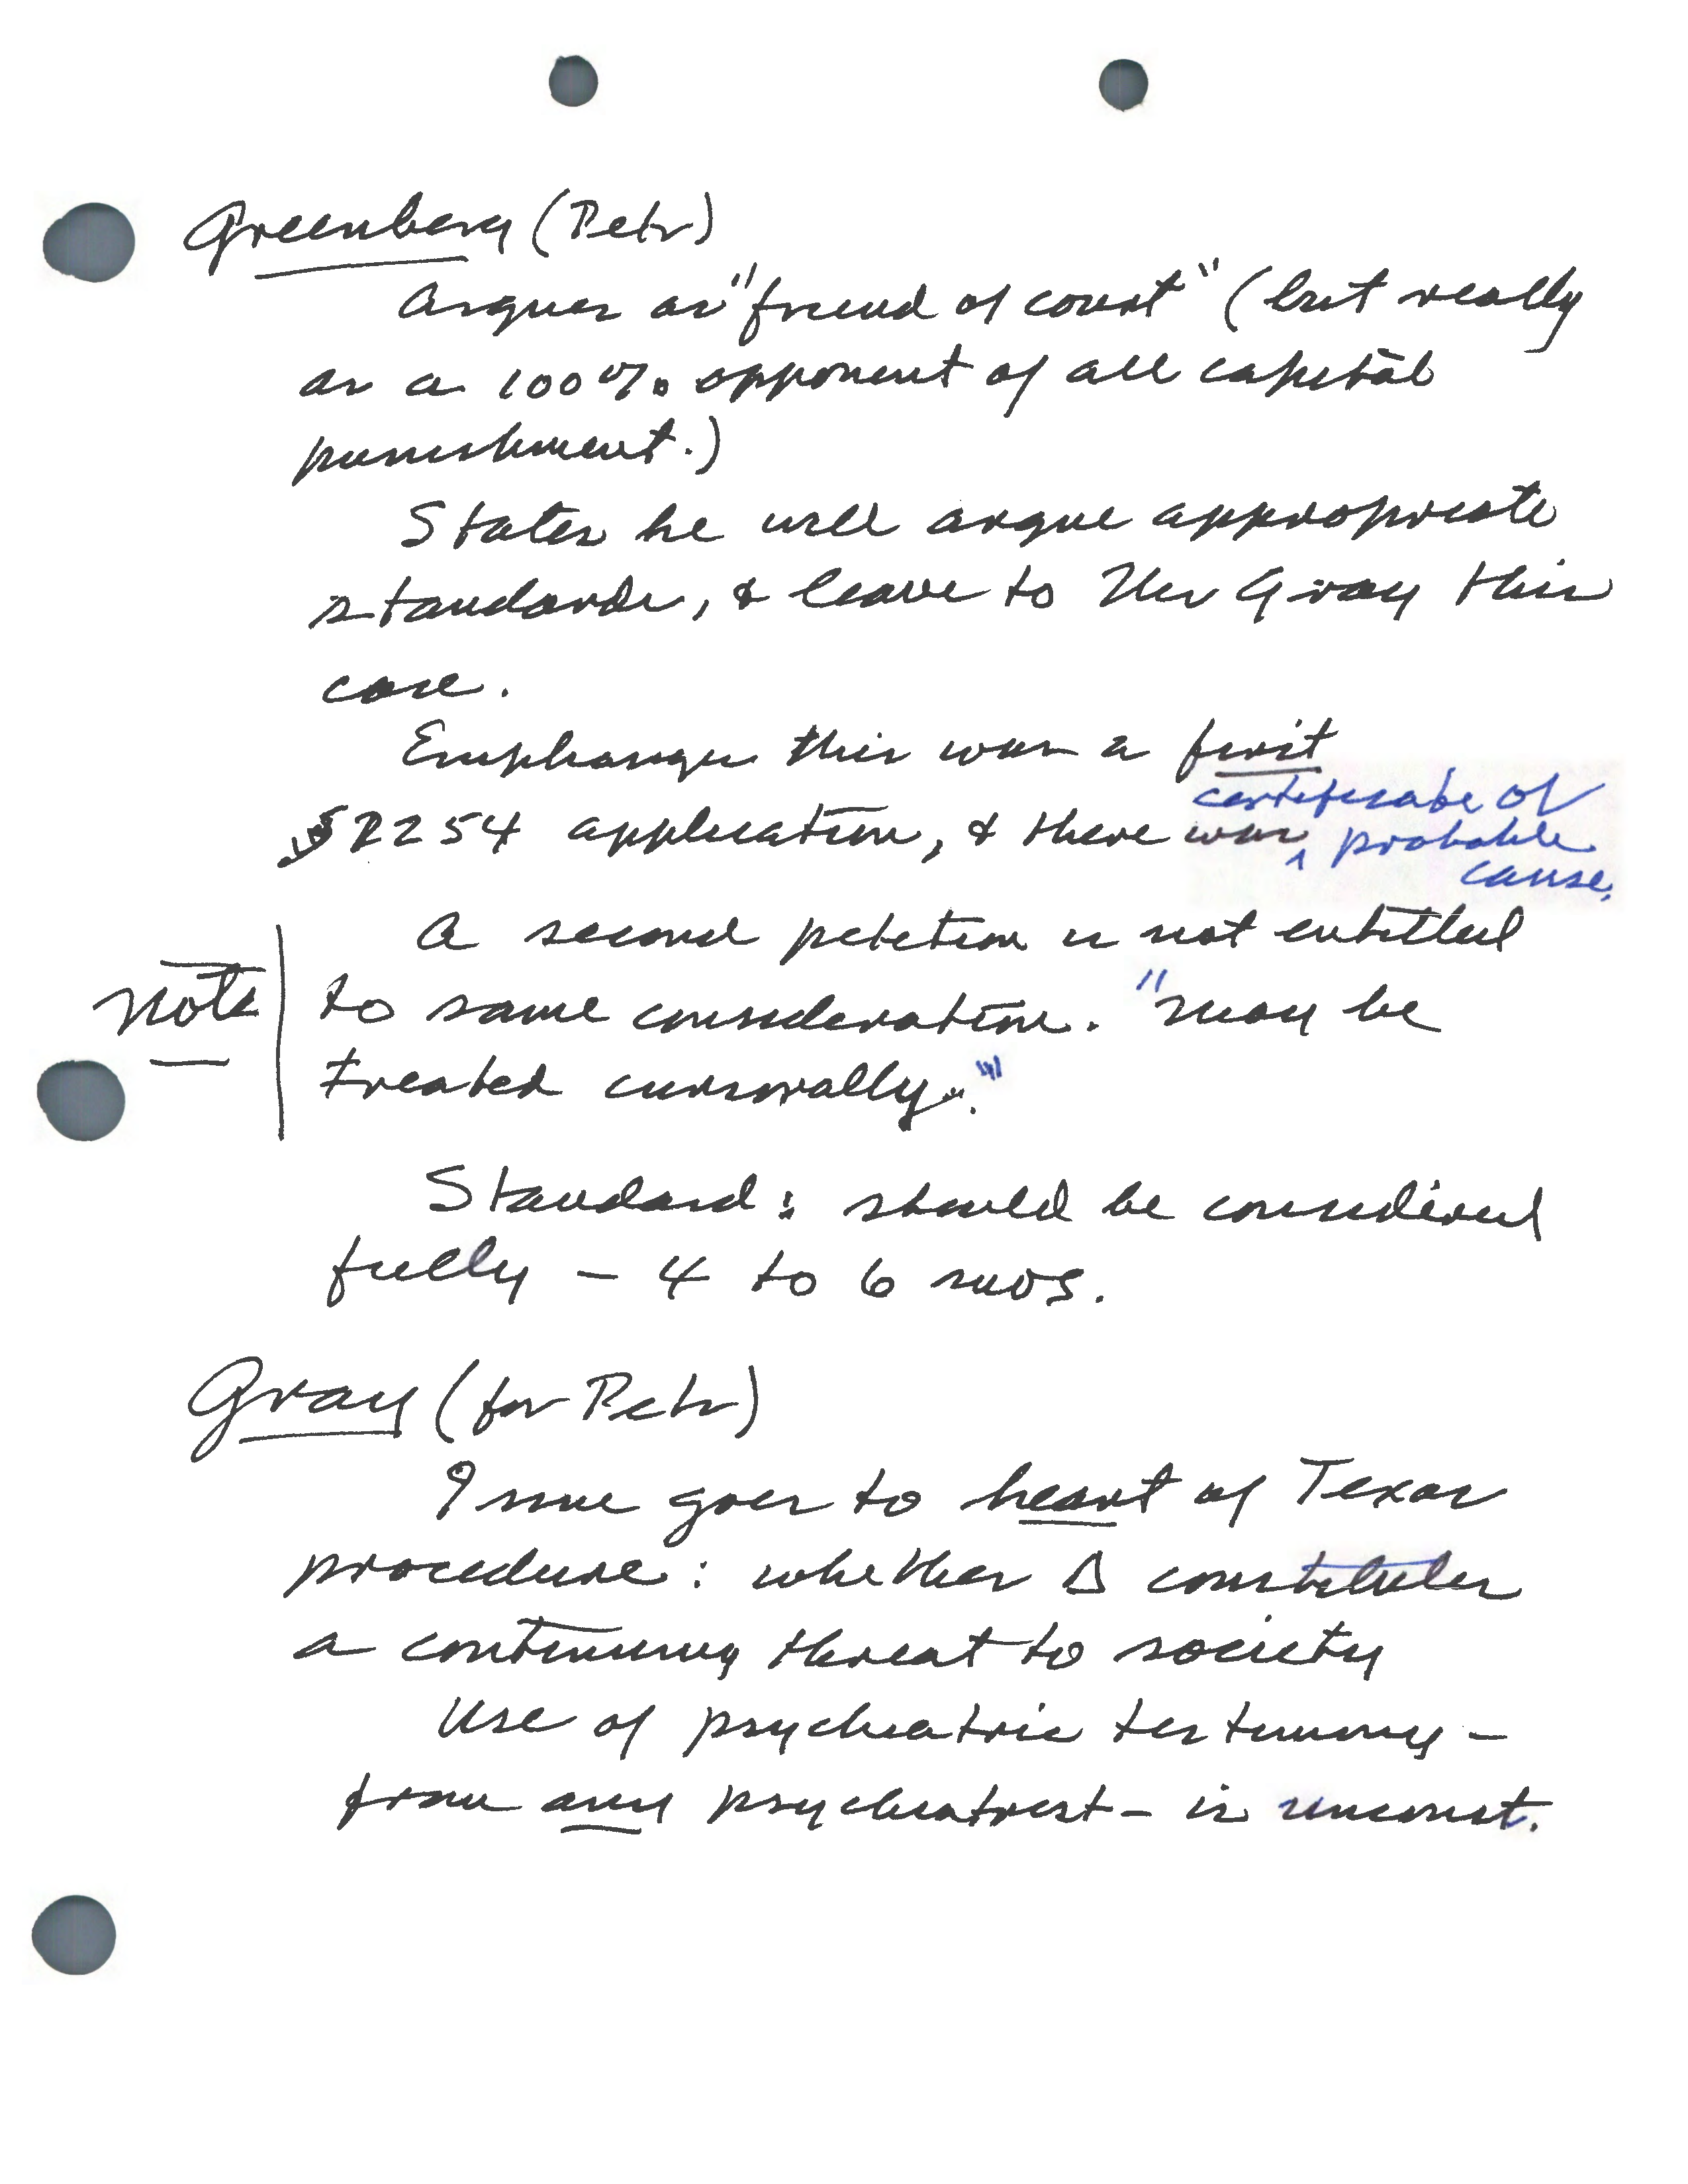 Greenberg (Petr)
Argues as "friend of court" (but really
as a 100% opponent of all capital
punishment.)
States he will argue appropriate
standards, & leave to Mr Gray this
case.
Emphasizes this was a first
§2254 application, & there was certificate of
probable
cause.
A second petition is not entitled
Note
to same consideration. "may be
treated cursorally."
Standard: should be considered
fully - 4 to 6 mos.
Gray (for Petr)
Issue goes to heart of Texas
procedure: whether Δ constitutes
a continuing threat to society
Use of psychiatric testimony -
from any psychiatrist - is unconst.